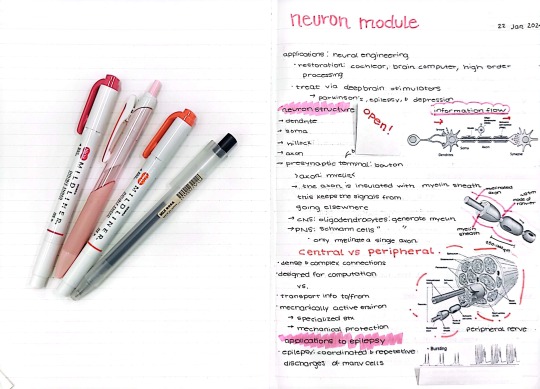 MILDLINER
MILDLINER
neuron module
22 Jan 202
applications: neural engineering
· restoration: cochlear, brain computer, high order
processing
· treat via deep brain stimulators
→ parkinson's, epilepsy, & depression
neuron structure
→ dendrite
→ soma
→ hillock
→ axon
→ presynaptic terminal: bouton
open!
information flow
Dendrites
Soma
Axon
Synapse
→ the axon is insulated with myelin sheath
this keeps the signals from
going elsewhere
→ CNS: oligodendrocytes: generate myelin
→ PNS: Schwann cells " "
· only myelinate a single axon
myelinated
axon
node of
ranvier
myelin
sheath
central vs peripheral
· dense & complex connections
designed for computation
vs.
· transport into/from
· mechanically active environ
→ specialized
→ mechanical protection
peripheral nerve
applications to epilepsy
· epilepsy: coordinated & repetitive
discharges of many cells
- Bursting